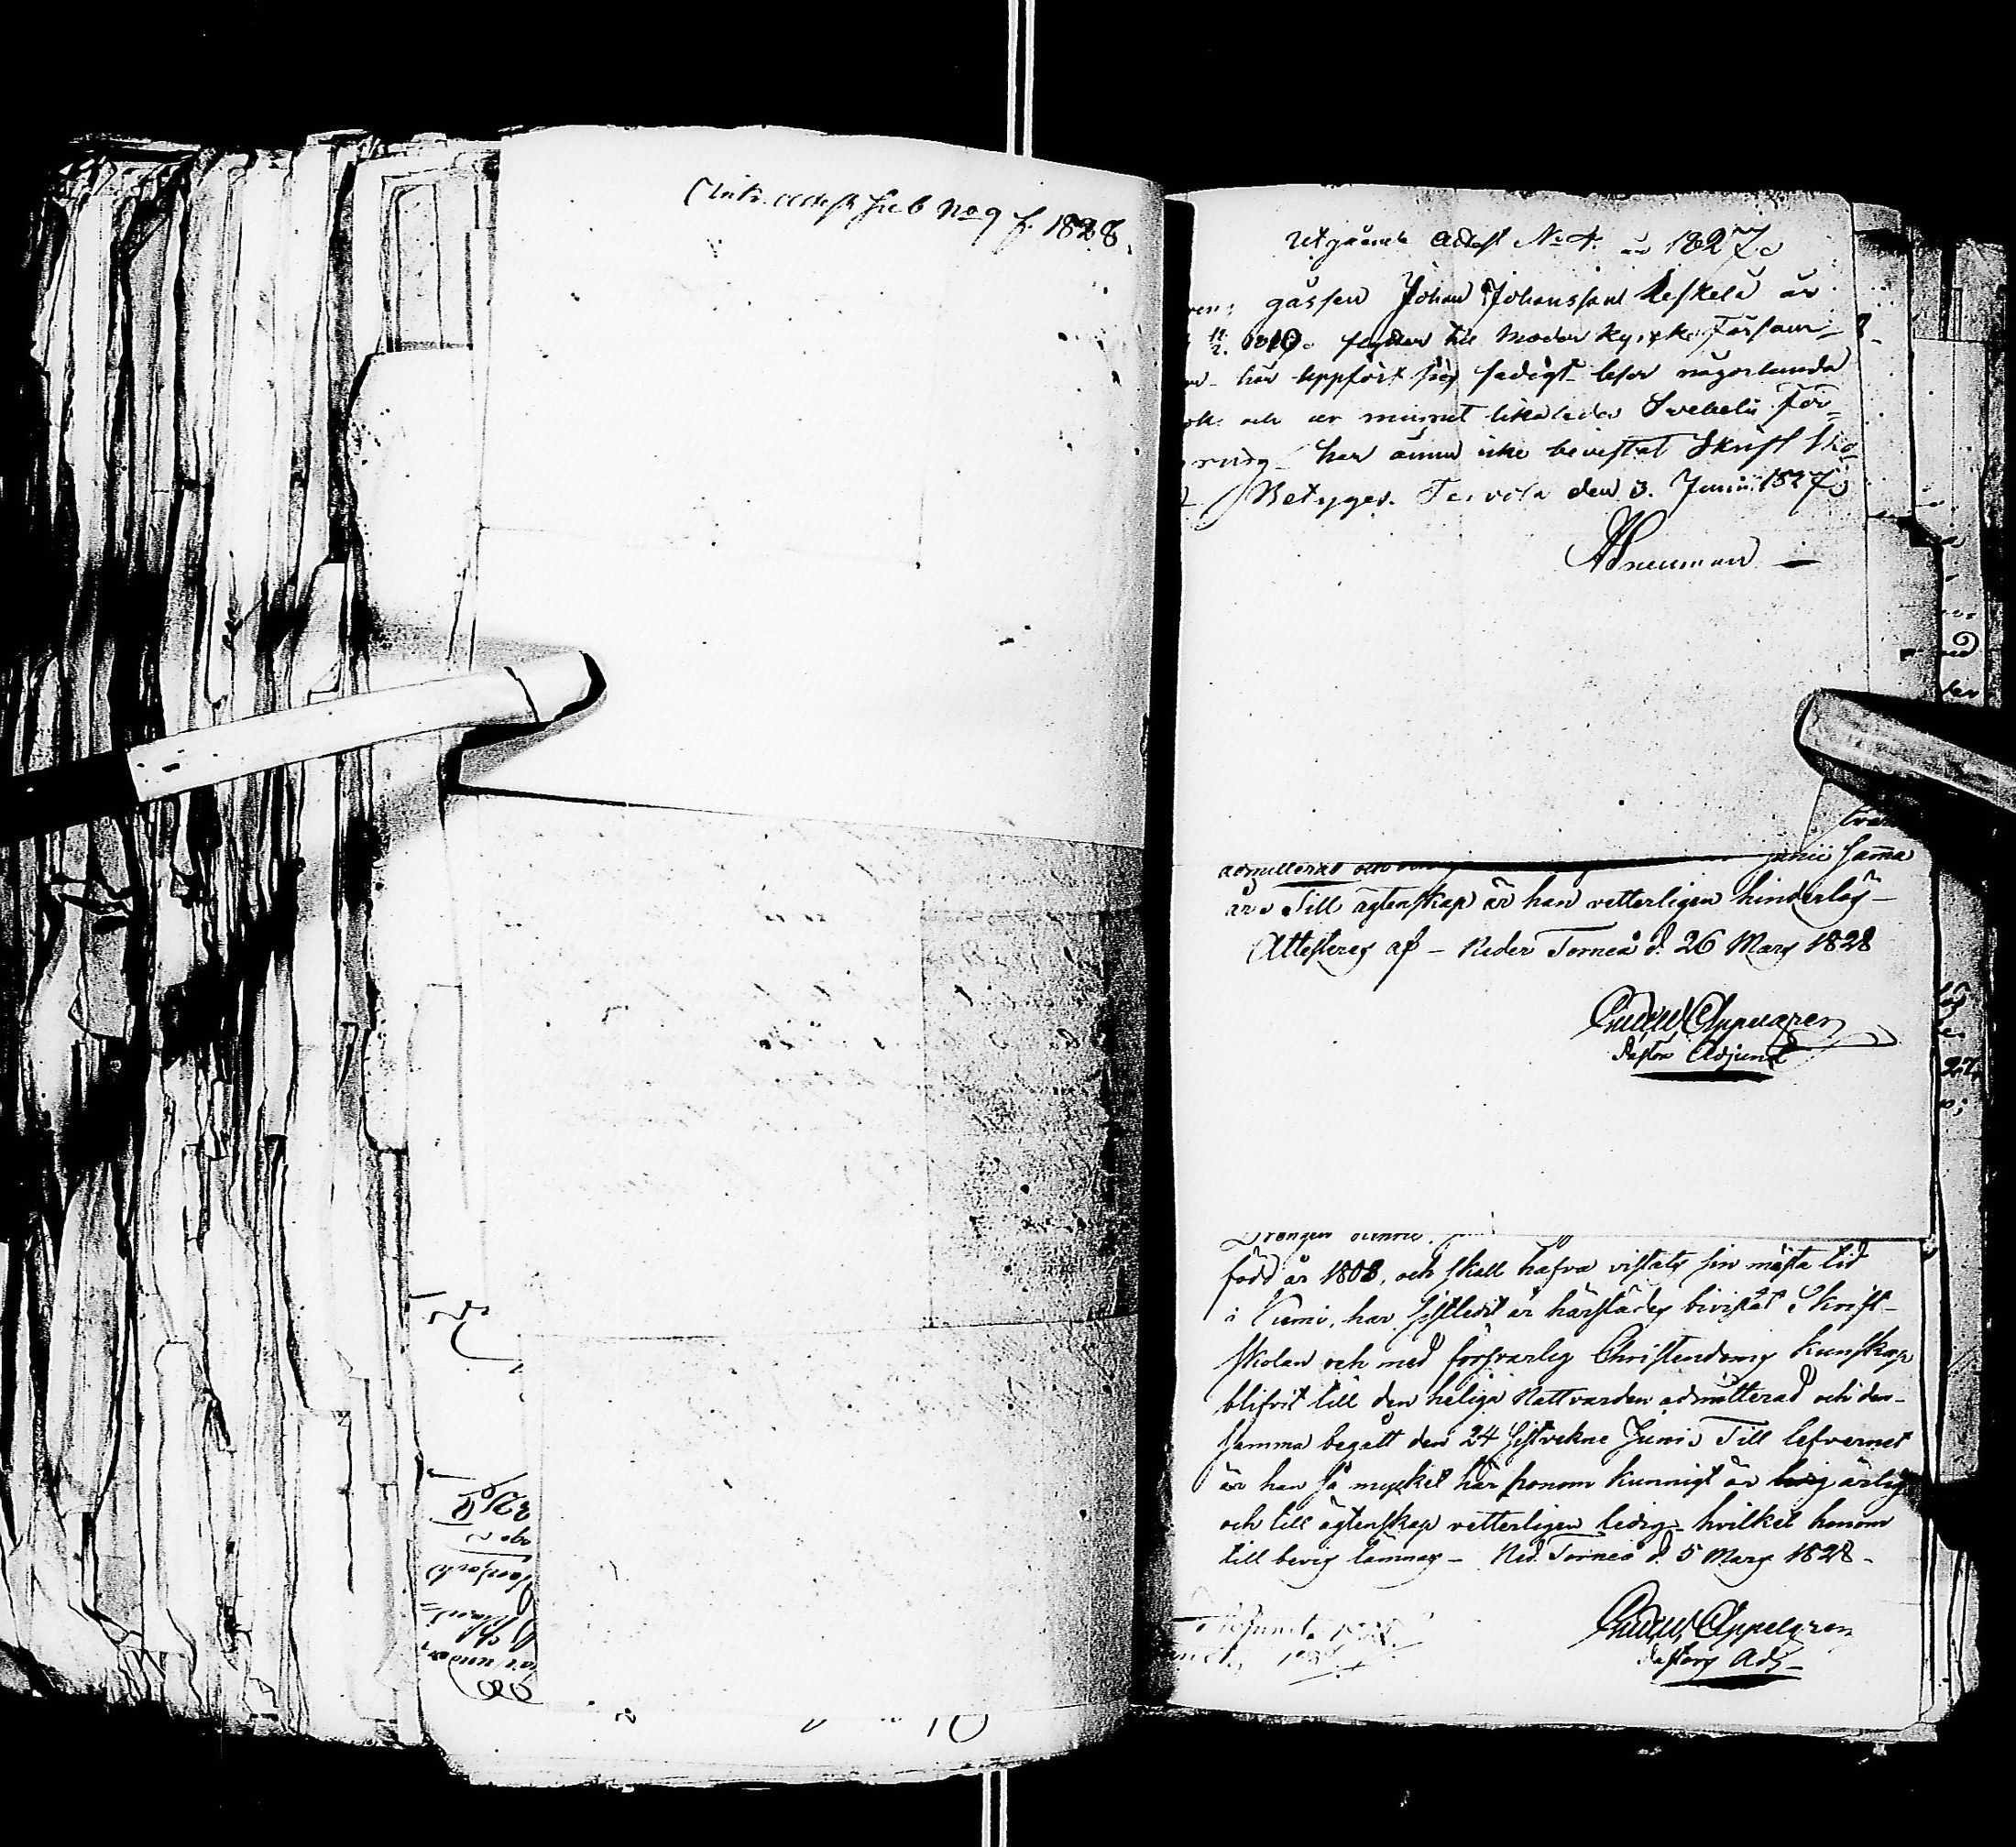 Ank. attest sub No 9 f. 1828.
Utgående Attest No 4. år 1827.
gåssen Johan Johansson Keskelä är
1810. flyttar till Moder Kyrko Försam-
har uppfört sig sedigt läser någorlunda
och ur minnet likaledes Svebelii För-
har ännu icke bevistat Skrift Sko-
Betyges. Tervola den 3. Junii 1827.
Sneuman
Junii samma
år. Till ägtenskap är han vetterligen hinderlös -
Attesteras af - Neder Torneå d. 26 Mars 1828
Appelgren
Pastors Adjunct
Drengen
född år 1808, och skall hafva vistats sin mästa tid
i Kiemi, har sistledit år härstädes bivistat Skrift-
skolan och med försvarlig Christendoms Kunskap
blifvit till den heliga Nattvarden admitterad och den-
samma begått den 24 sistvekne Junii. Till lefvernet
är han så mycket här honom kunnigt är ärlig
och till ägtenskap vetterligen ledig, hvilket honom
till bevis lämnas - Ned. Torneå d. 5 Mars 1828 -
Appelgren
Pastors Adj.